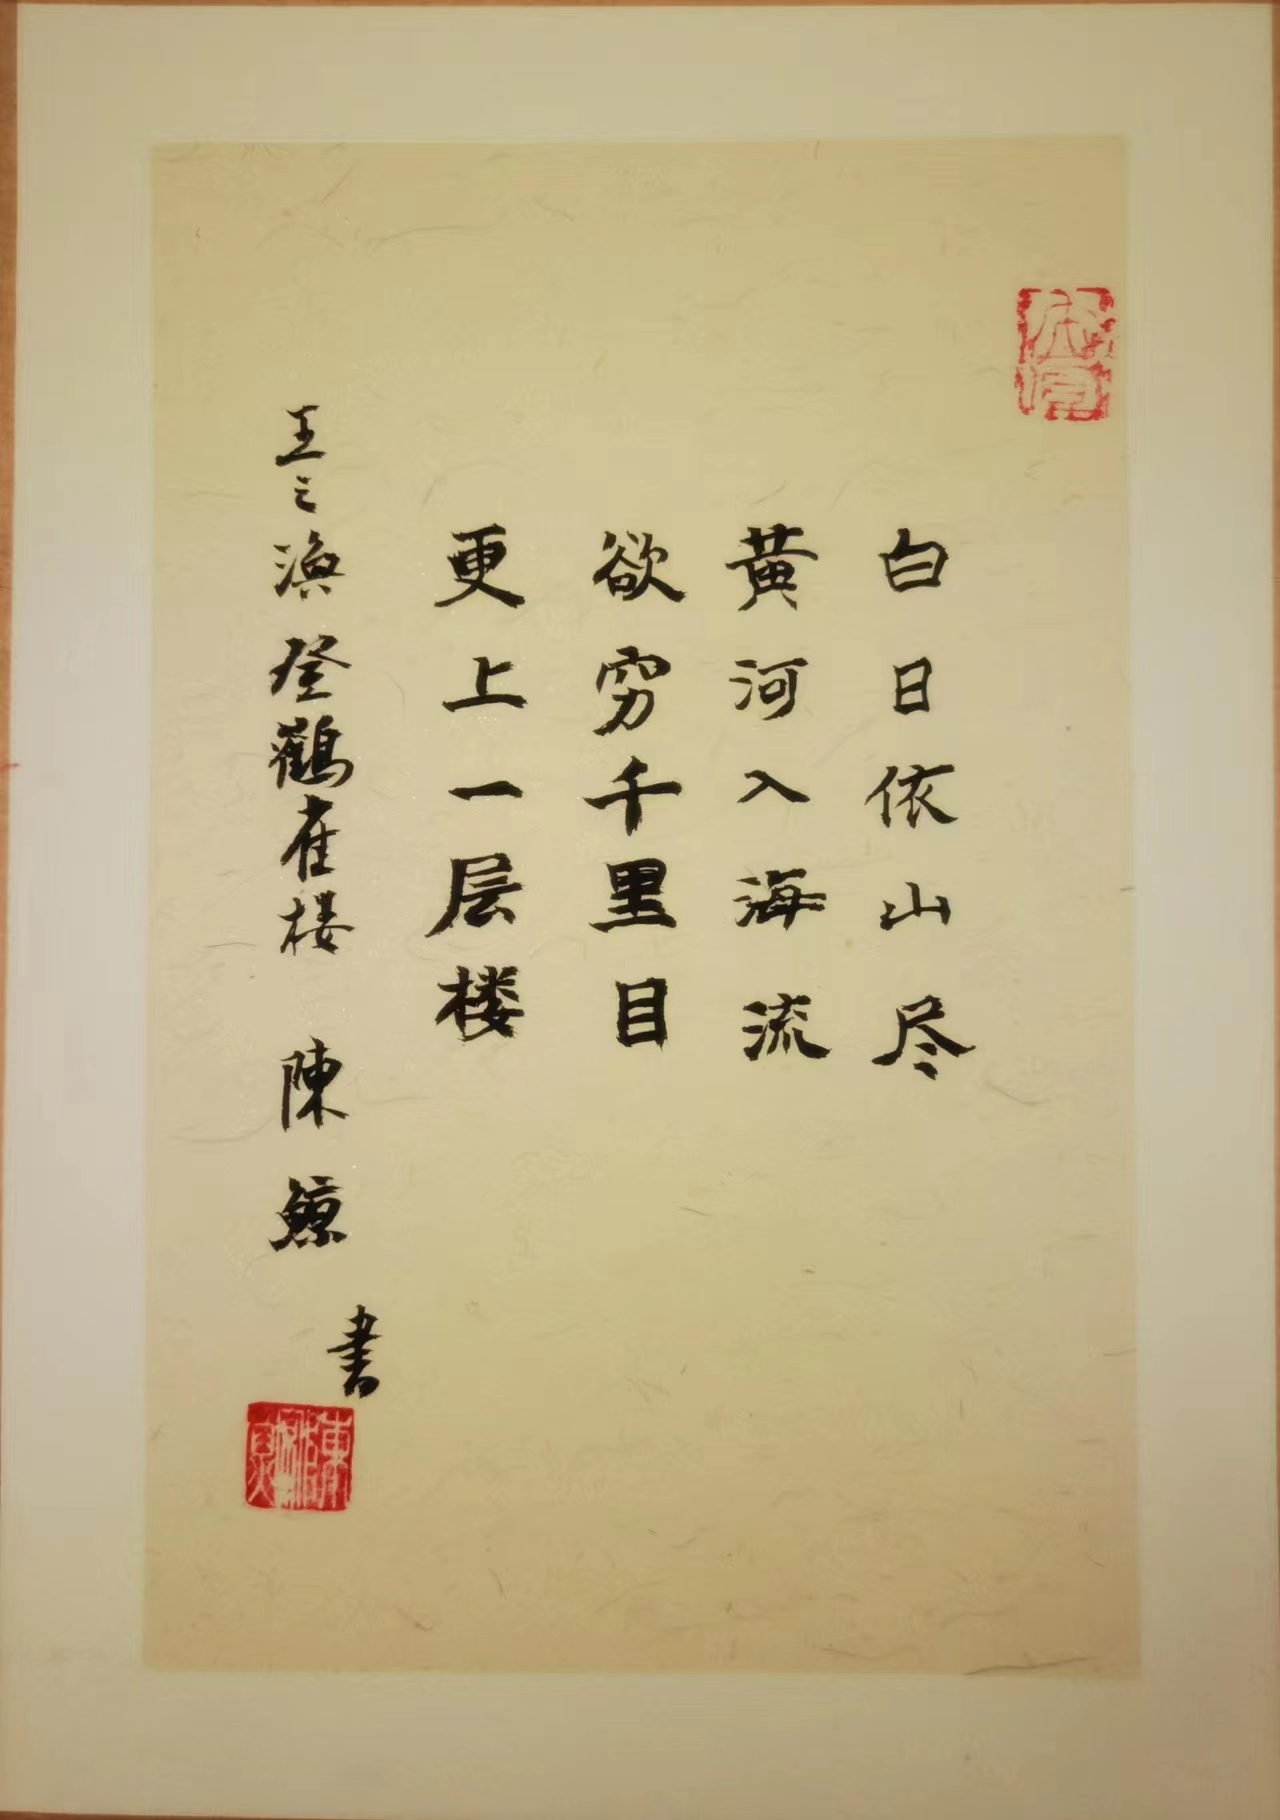 白日依山尽
黄河入海流
欲穷千里目
更上一层楼
王之涣登鹳雀楼 陳鲸
書